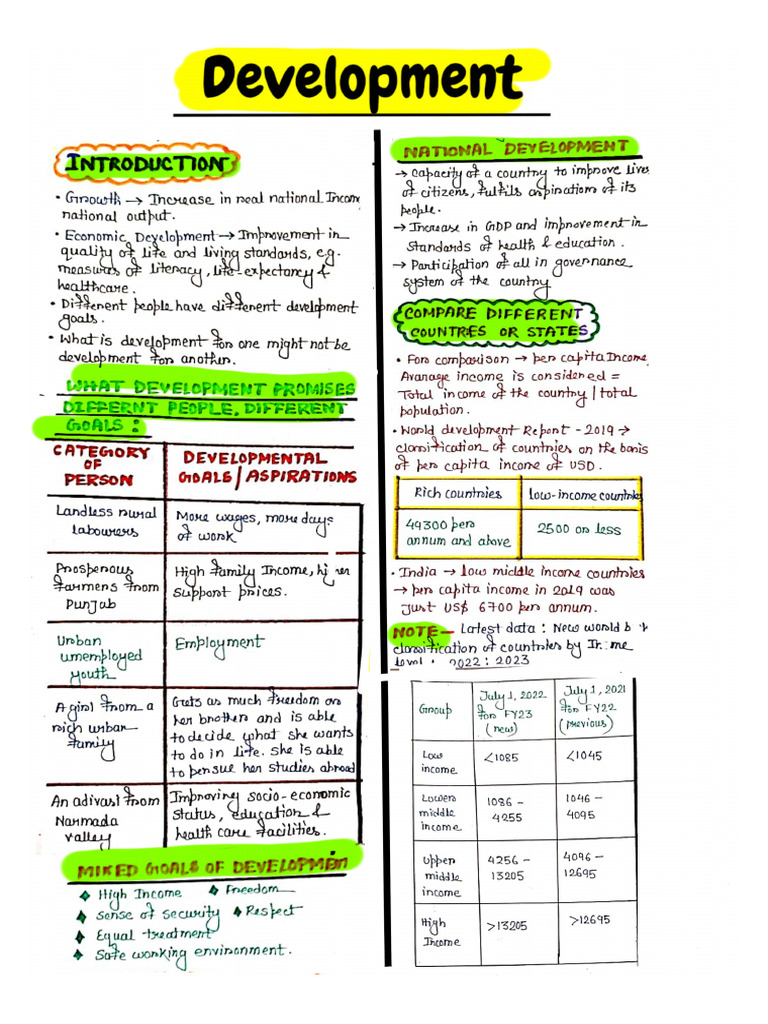 Development
INTRODUCTION
• Growth → Increase in real national Incom
national output.
• Economic Development → Improvement in
quality of life and living standards, e.g.
measures of literacy, life-expectancy &
healthcare.
• Different people have different development
goals.
• What is development for one might not be
development for another.
WHAT DEVELOPMENT PROMISES
DIFFERNT PEOPLE, DIFFERENT
GOALS :
CATEGORY
OF
PERSON
DEVELOPMENTAL
GOALS/ASPIRATIONS
Landless rural
labourers
More wages, more days
of work
Prosperous
farmers from
Punjab
High family Income,
support prices.
Urban
unemployed
youth
Employment
A girl from a
rich urban
family
Gets as much freedom as
her brother and is able
to decide what she wants
to do in life. she is able
to persue her studies abroad
An adivasi from
Narmada
valley
Improving socio-economic
status, education &
health care facilities.
MIXED GOALS OF DEVELOPMEN
♦ High Income ♦ Freedom
♦ sense of security ♦ Respect
♦ Equal treatment
♦ Safe working environment.
NATIONAL DEVELOPMENT
→ Capacity of a country to improve lives
of citizens, fulfils aspirations of its
people.
→ Increase in GDP and improvement in
standards of health & education.
→ Participation of all in governance
system of the country
COMPARE DIFFERENT
COUNTRIES OR STATES
• For comparison → per capita Income,
Avarage income is considered =
Total income of the country / total
population.
• World development Report - 2019 →
classification of countries on the basis
of per capita income of USD.
Rich countries
low-income countries
49300 per
annum and above
2500 or less
• India → low middle income countries
→ per capita income in 2019 was
Just US$ 6700 per annum.
NOTE — Latest data : New world b
classification of countries by In me
level : 2022 : 2023
Group
July 1, 2022
for FY23
(new)
July 1, 2021
for FY22
(previous)
Low
income
<1085
<1045
Lower
middle
income
1086 -
4255
1046 -
4095
Upper
middle
income
4256 -
13205
4096 -
12695
High
Income
>13205
>12695